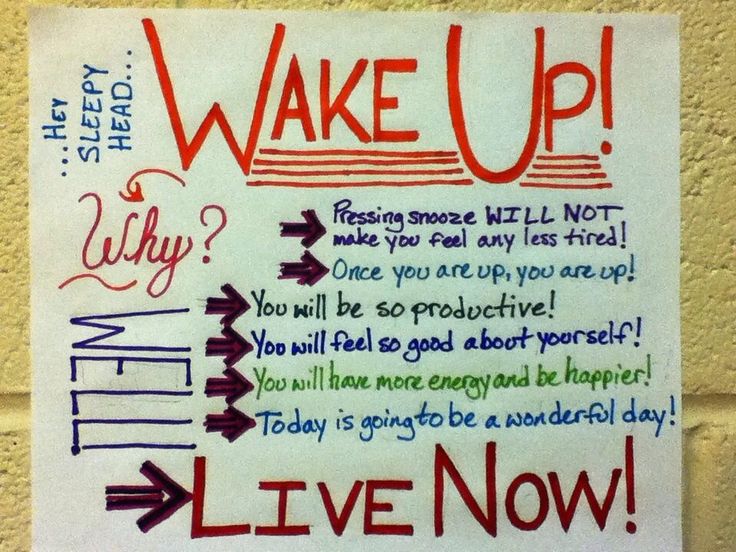 ...HEY
SLEEPY
HEAD...
WAKE UP!
Why?
Pressing snooze WILL NOT
make you feel any less tired!
Once you are up, you are up!
WELL!
You will be so productive!
You will feel so good about yourself!
You will have more energy and be happier!
Today is going to be a wonderful day!
LIVE NOW!